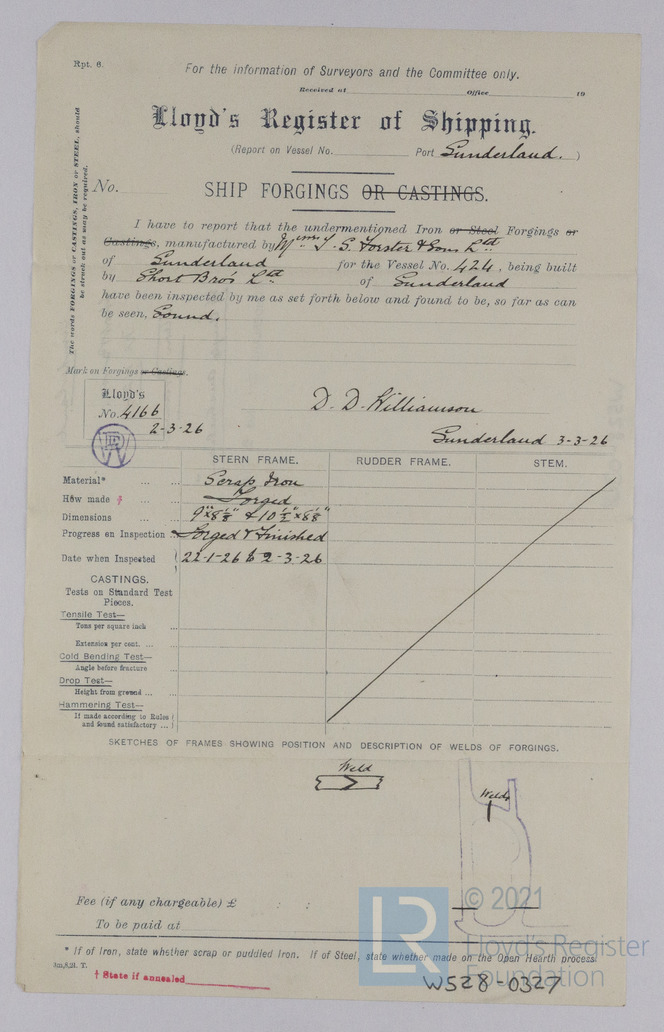 Rpt. 6.
For the information of Surveyors and the Committee only.
Received at Office 19
Lloyd's Register of Shipping.
(Report on Vessel No. Port Sunderland.)
The words FORGINGS or CASTINGS, IRON or STEEL, should
be struck out as may be required.
No. SHIP FORGINGS OR CASTINGS.
I have to report that the undermentioned Iron or Steel Forgings or
Castings, manufactured by Messrs T. S. Forster & Sons Ltd
of Sunderland for the Vessel No. 424, being built
by Short Bro's Ltd of Sunderland
have been inspected by me as set forth below and found to be, so far as can
be seen, Sound.
Mark on Forgings or Castings.
Lloyd's
No. 4166
2-3-26
D. D. Williamson
Sunderland 3-3-26
STERN FRAME. RUDDER FRAME. STEM.
Material* ... ... Scrap Iron
How made † ... ... Forged
Dimensions ... ... 9"x8⅝" & 10½"x8⅝"
Progress on Inspection ... Forged & Finished
Date when Inspected 22-1-26 to 2-3-26
CASTINGS.
Tests on Standard Test
Pieces.
Tensile Test—
Tons per square inch ...
Extension per cent. ... ...
Cold Bending Test—
Angle before fracture ...
Drop Test—
Height from ground ... ...
Hammering Test—
If made according to Rules
and found satisfactory ... ...
SKETCHES OF FRAMES SHOWING POSITION AND DESCRIPTION OF WELDS OF FORGINGS.
Weld
Welds
Fee (if any chargeable) £ : :
To be paid at
* If of Iron, state whether scrap or puddled Iron. If of Steel, state whether made on the Open Hearth process.
† State if annealed
W528-0327
LR
© 2021
Lloyd's Register
Foundation